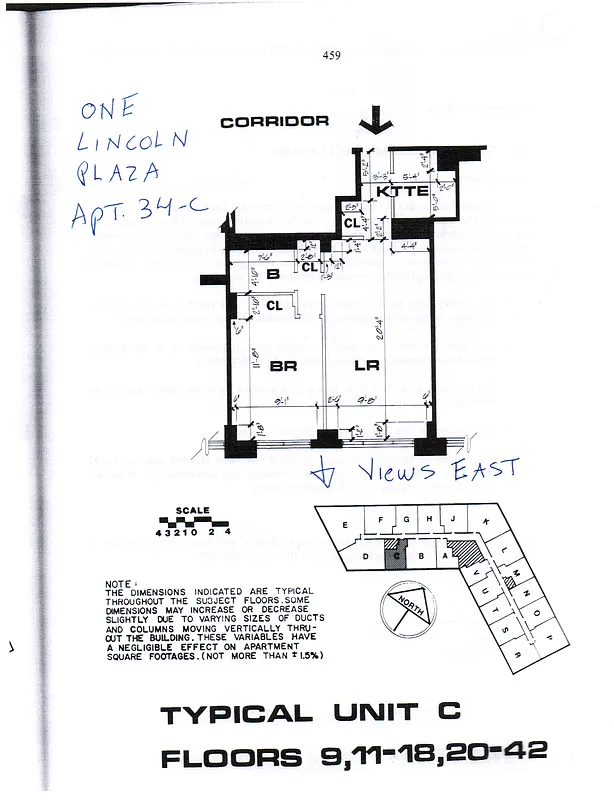 459
ONE
LINCOLN
PLAZA
APT. 34-C
CORRIDOR
KTTE
5'-4"
CL
4'-4"
7'-6"
B
CL
4'-6"
CL
20'-4"
11'-8"
BR
LR
9'-1"
9'-8"
VIEWS EAST
SCALE
4 3 2 1 0 2 4
E F G H J K
D C B A L
M
N
O
P
V
U
T
S
R
NORTH
NOTE:
THE DIMENSIONS INDICATED ARE TYPICAL
THROUGHOUT THE SUBJECT FLOORS. SOME
DIMENSIONS MAY INCREASE OR DECREASE
SLIGHTLY DUE TO VARYING SIZES OF DUCTS
AND COLUMNS MOVING VERTICALLY THRU-
OUT THE BUILDING. THESE VARIABLES HAVE
A NEGLIGIBLE EFFECT ON APARTMENT
SQUARE FOOTAGES. (NOT MORE THAN ±1.5%)
TYPICAL UNIT C
FLOORS 9,11-18,20-42